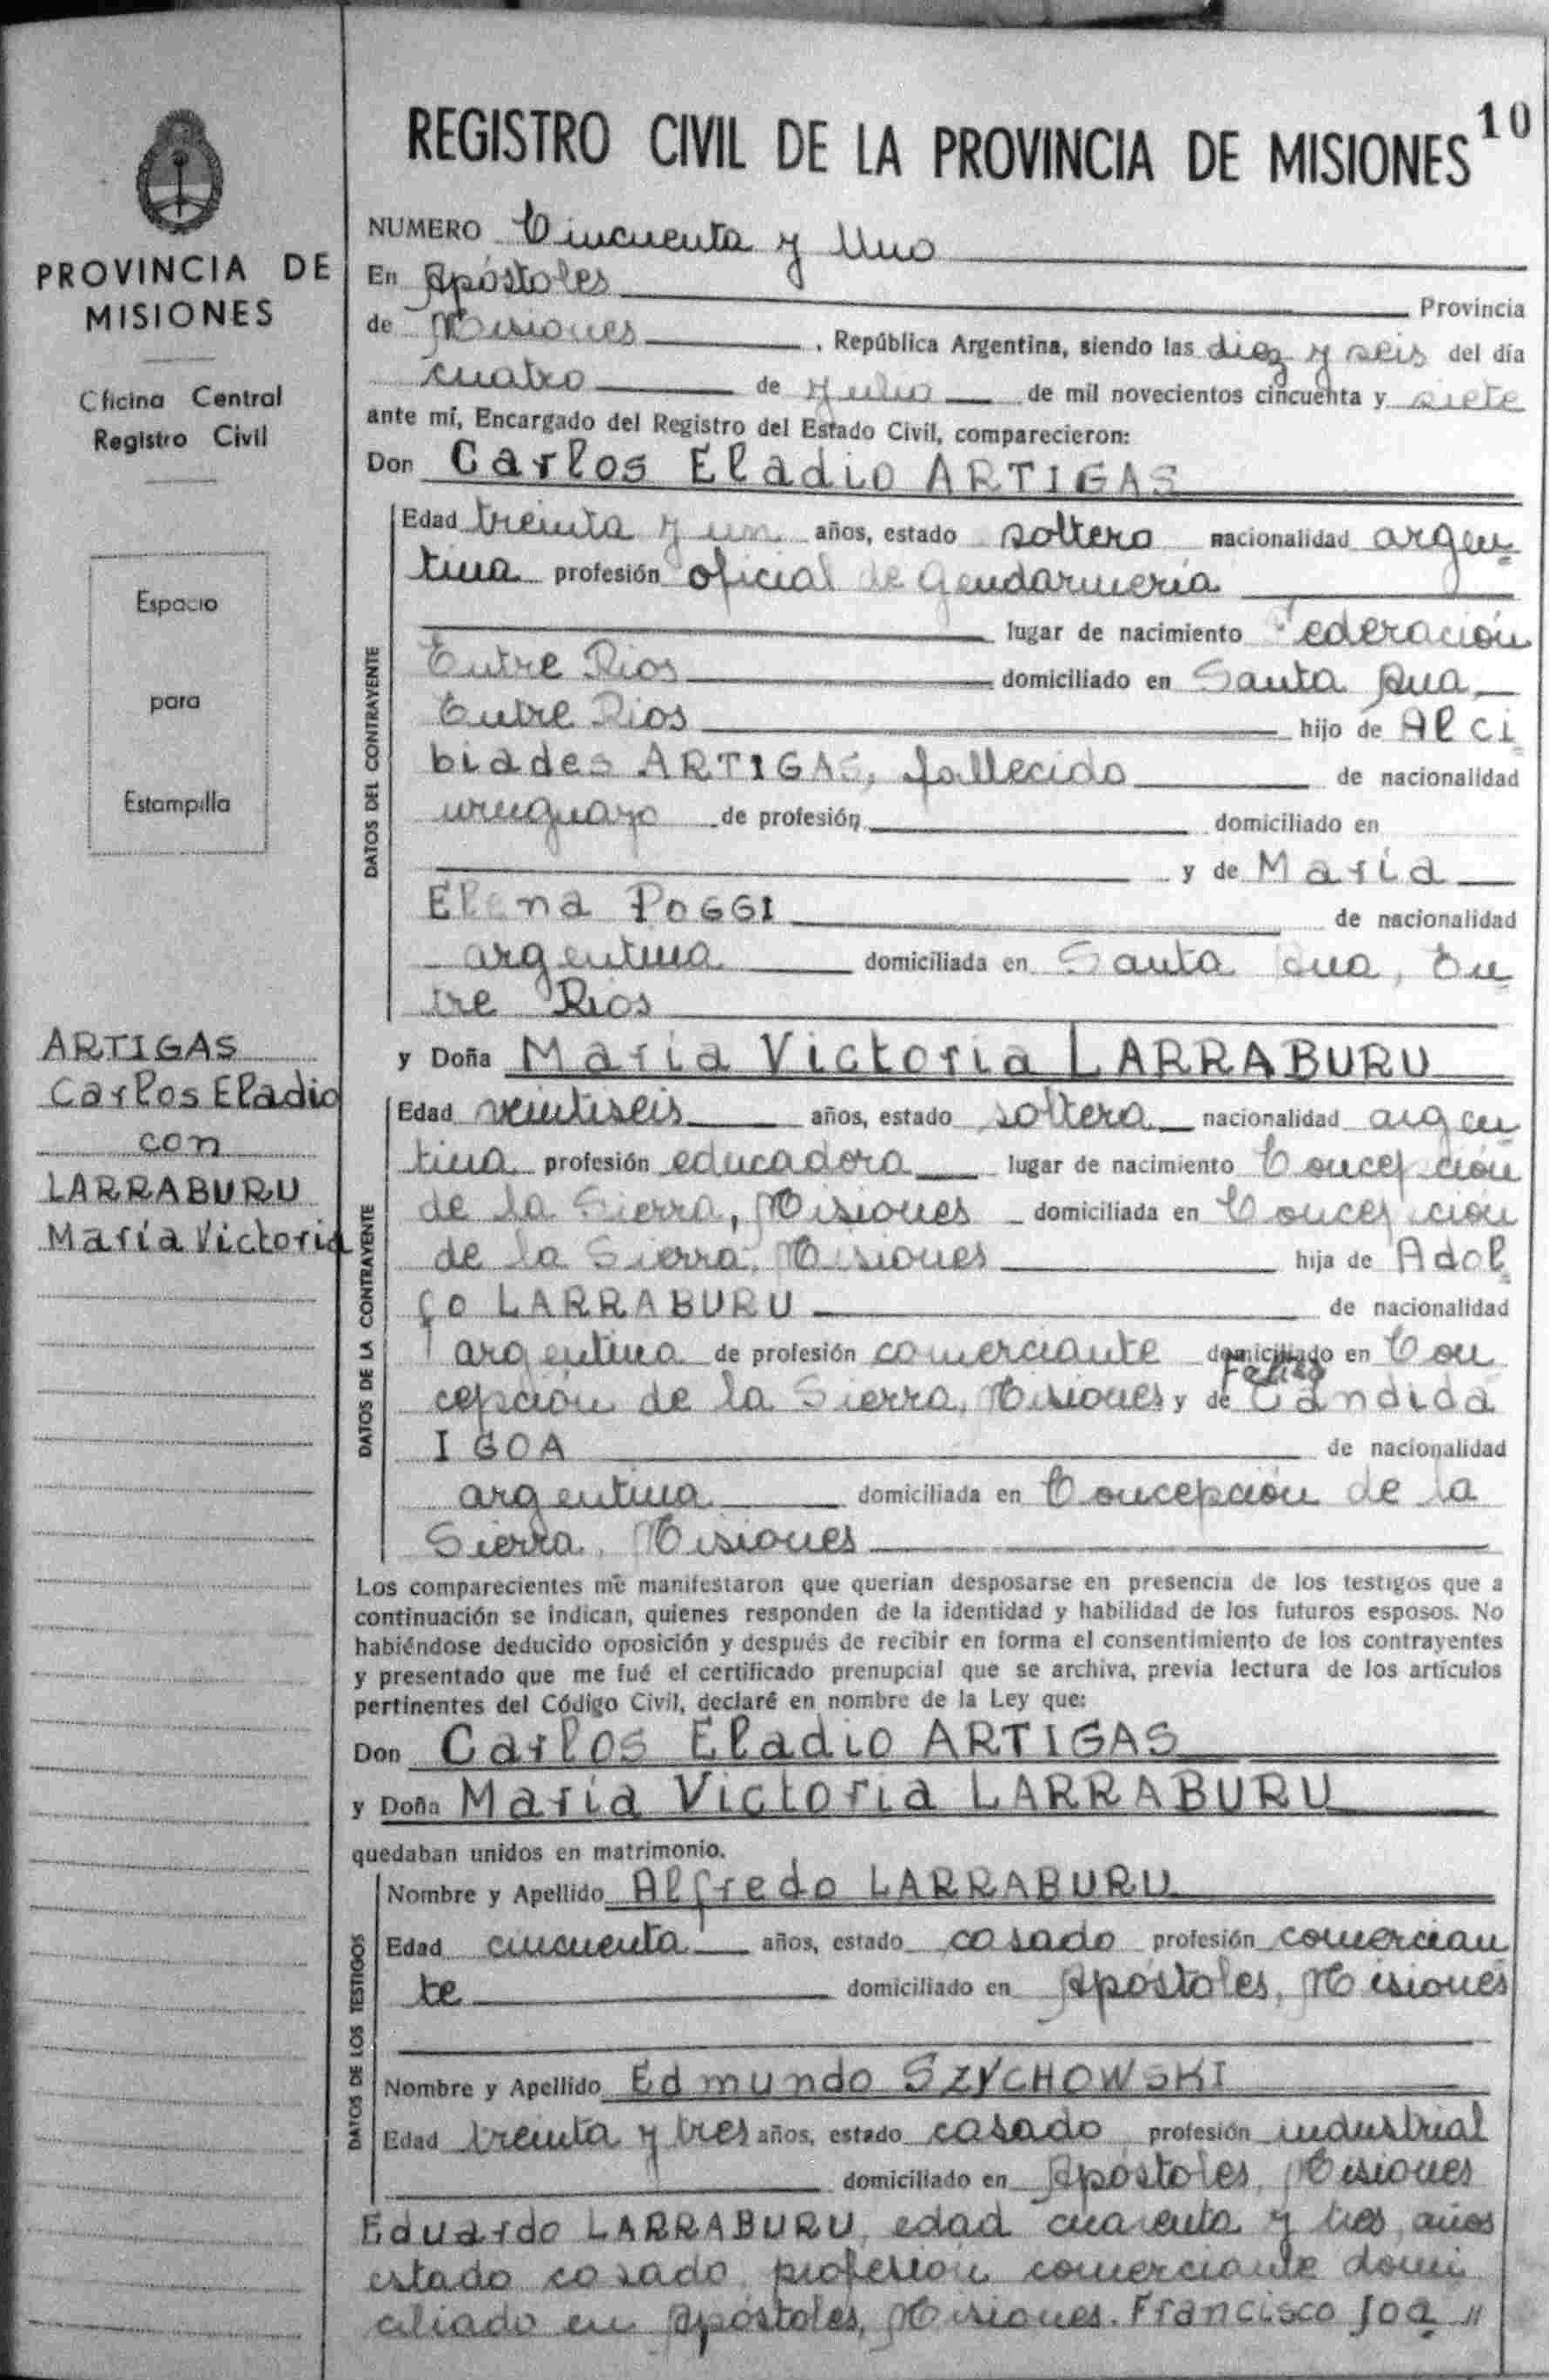 10
REGISTRO CIVIL DE LA PROVINCIA DE MISIONES
PROVINCIA DE
MISIONES
Oficina Central
Registro Civil
Espacio
para
Estampilla
ARTIGAS
Carlos Eladio
con
LARRABURU
María Victoria
NUMERO Cincuenta y Uno
En Apóstoles Provincia
de Misiones, República Argentina, siendo las diez y seis del día
cuatro de Julio de mil novecientos cincuenta y siete
ante mí, Encargado del Registro del Estado Civil, comparecieron:
Don Carlos Eladio ARTIGAS
DATOS DEL CONTRAYENTE
Edad treinta y un años, estado soltero nacionalidad argen-
tina profesión oficial de Gendarmería
lugar de nacimiento Federación
Entre Rios domiciliado en Santa Ana
Entre Rios hijo de Alci
biades ARTIGAS, fallecido de nacionalidad
uruguayo de profesión domiciliado en
y de María
Elena POGGI de nacionalidad
argentina domiciliada en Santa Ana, En-
tre Rios
y Doña María Victoria LARRABURU
DATOS DE LA CONTRAYENTE
Edad veintiseis años, estado soltera nacionalidad argen
tina profesión educadora lugar de nacimiento Concepción
de la Sierra, Misiones domiciliada en Concepción
de la Sierra, Misiones hija de Adol-
fo LARRABURU de nacionalidad
argentina de profesión comerciante domiciliado en Con
cepción de la Sierra, Misiones y de Cándida
IGOA de nacionalidad
argentina domiciliada en Concepción de la
Sierra, Misiones
Los comparecientes me manifestaron que querían desposarse en presencia de los testigos que a
continuación se indican, quienes responden de la identidad y habilidad de los futuros esposos. No
habiéndose deducido oposición y después de recibir en forma el consentimiento de los contrayentes
y presentado que me fué el certificado prenupcial que se archiva, previa lectura de los artículos
pertinentes del Código Civil, declaré en nombre de la Ley que:
Don Carlos Eladio ARTIGAS
y Doña María Victoria LARRABURU
quedaban unidos en matrimonio.
DATOS DE LOS TESTIGOS
Nombre y Apellido Alfredo LARRABURU
Edad cincuenta años, estado casado profesión comercian
te domiciliado en Apóstoles, Misiones
Nombre y Apellido Edmundo SZYCHOWSKI
Edad treinta y tres años, estado casado profesión industrial
domiciliado en Apóstoles, Misiones
Eduardo LARRABURU, edad cuarenta y tres, años
estado casado, profesión comerciante domi
ciliado en Apóstoles, Misiones. Francisco Joa "